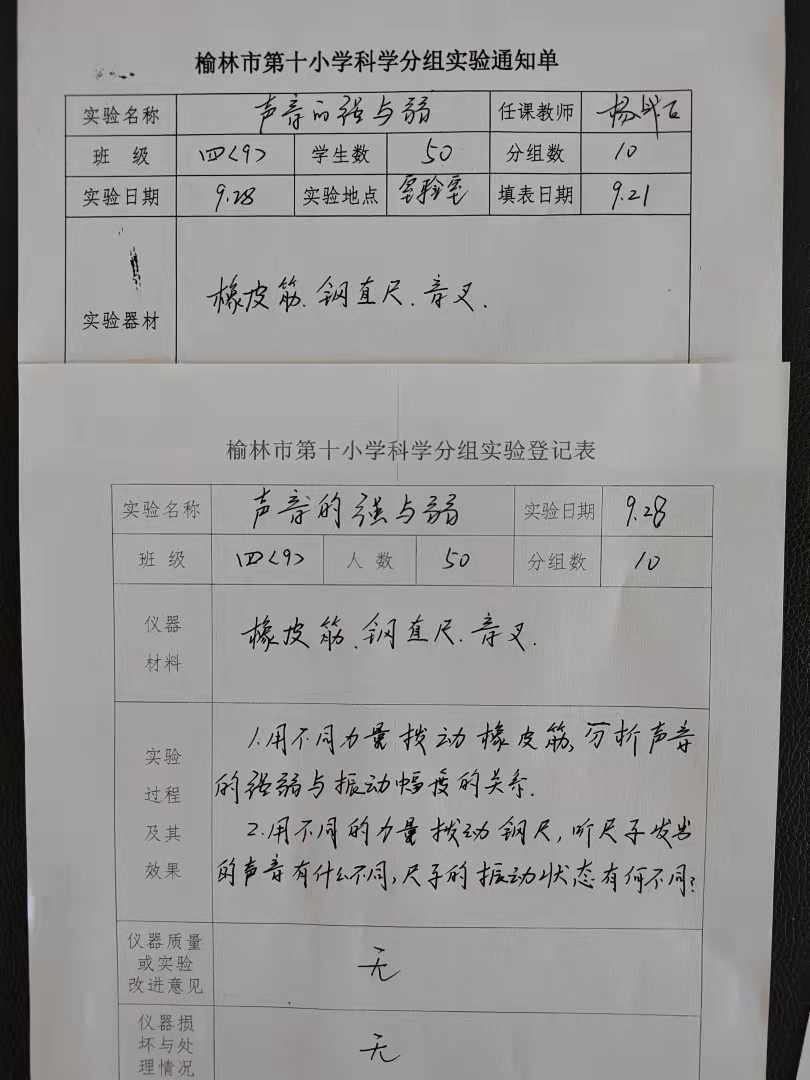 榆林市第十小学科学分组实验通知单
实验名称 声音的强与弱 任课教师
班 级 四<9> 学生数 50 分组数 10
实验日期 9.28 实验地点 实验室 填表日期 9.21
实验器材 橡皮筋、钢直尺、音叉.
榆林市第十小学科学分组实验登记表
实验名称 声音的强与弱 实验日期 9.28
班 级 四<9> 人 数 50 分组数 10
仪器
材料
橡皮筋、钢直尺、音叉.
实验
过程
及其
效果
1.用不同力量拨动橡皮筋,分析声音
的强弱与振动幅度的关系.
2.用不同的力量拨动钢尺,听尺子发出
的声音有什么不同,尺子的振动状态有何不同?
仪器质量
或实验
改进意见
无
仪器损
坏与处
理情况
无